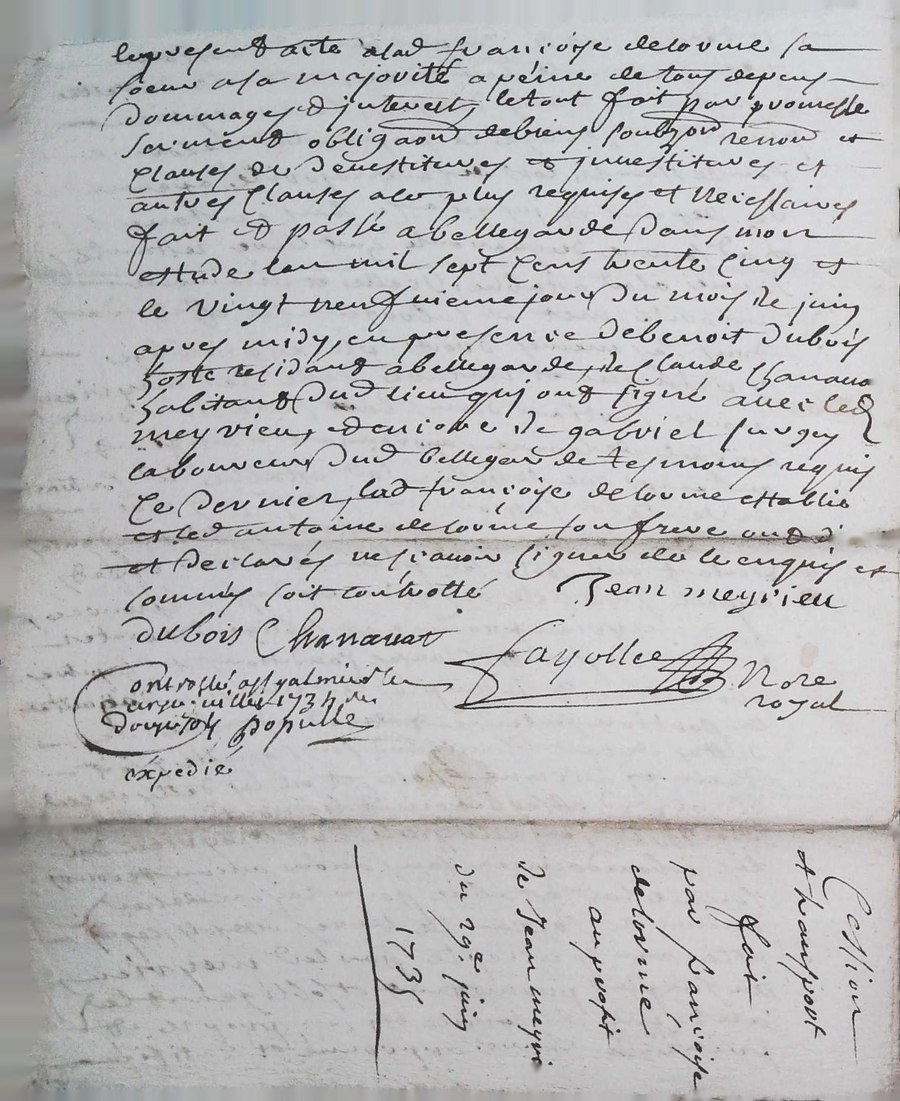 lepresend acte alad françoise delorme sa
soeur asa majorité apeine de tous depens
dommages & interest, letout fait par promesse
serment obligaon debiens soubzon renon et
clauses de devestitures et investitures et
autres clauses ala plus requises et necessaires
fait et passé abellegarde dans mon
estude lan mil sept cens trente cinq et
le vingt neufvieme jour du mois de juin
apres midy, en presence debenoit dubois
hoste residand abellegarde, de claude chanauat
habitand dud lieu qui ond signé avec led
meyrieu, et encore de gabriel
laboureur dud bellegarde tesmoins requis
ce dernier, lad françoise delorme establie
et led antoine delorme son frere ond
et declarés nescavoir signer de ce enquis et
sommés soit controllé Jean meyrieu
dubois Chanauat
fayolle Nore
royal
Controllé a st galmier le
juillet 1735
douze sols populle
expedié
Cession
et transport
fait
par françoise
delorme
au profit
de Jean meyri
du 29e juin
1735